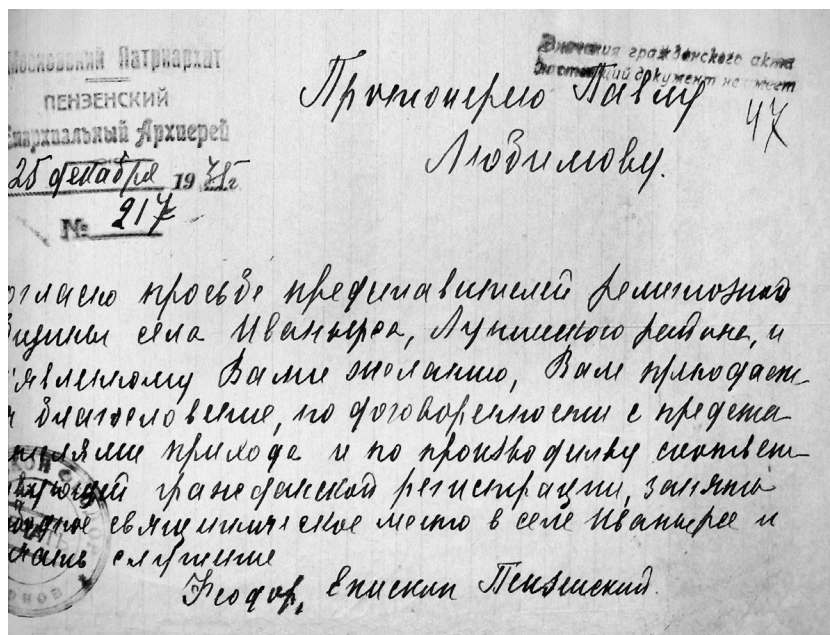 Московский Патриархат
ПЕНЗЕНСКИЙ
Епархиальный Архиерей
25 декабря 19
№ 217
Значения гражданского акта
документ не имеет
47
Протоиерею Павлу
Любимову.
огласно просьбе представителей религиозной
бщины села Иванырса, Лунинского района, и
явленному Вами желанию, Вам преподает-
я благословение, по договоренности с предста-
ителями прихода и по производству соответ-
ствующей гражданской регистрации, занять
священническое место в селе Иванырсе и
служение
Феодор, Епископ Пензенский.